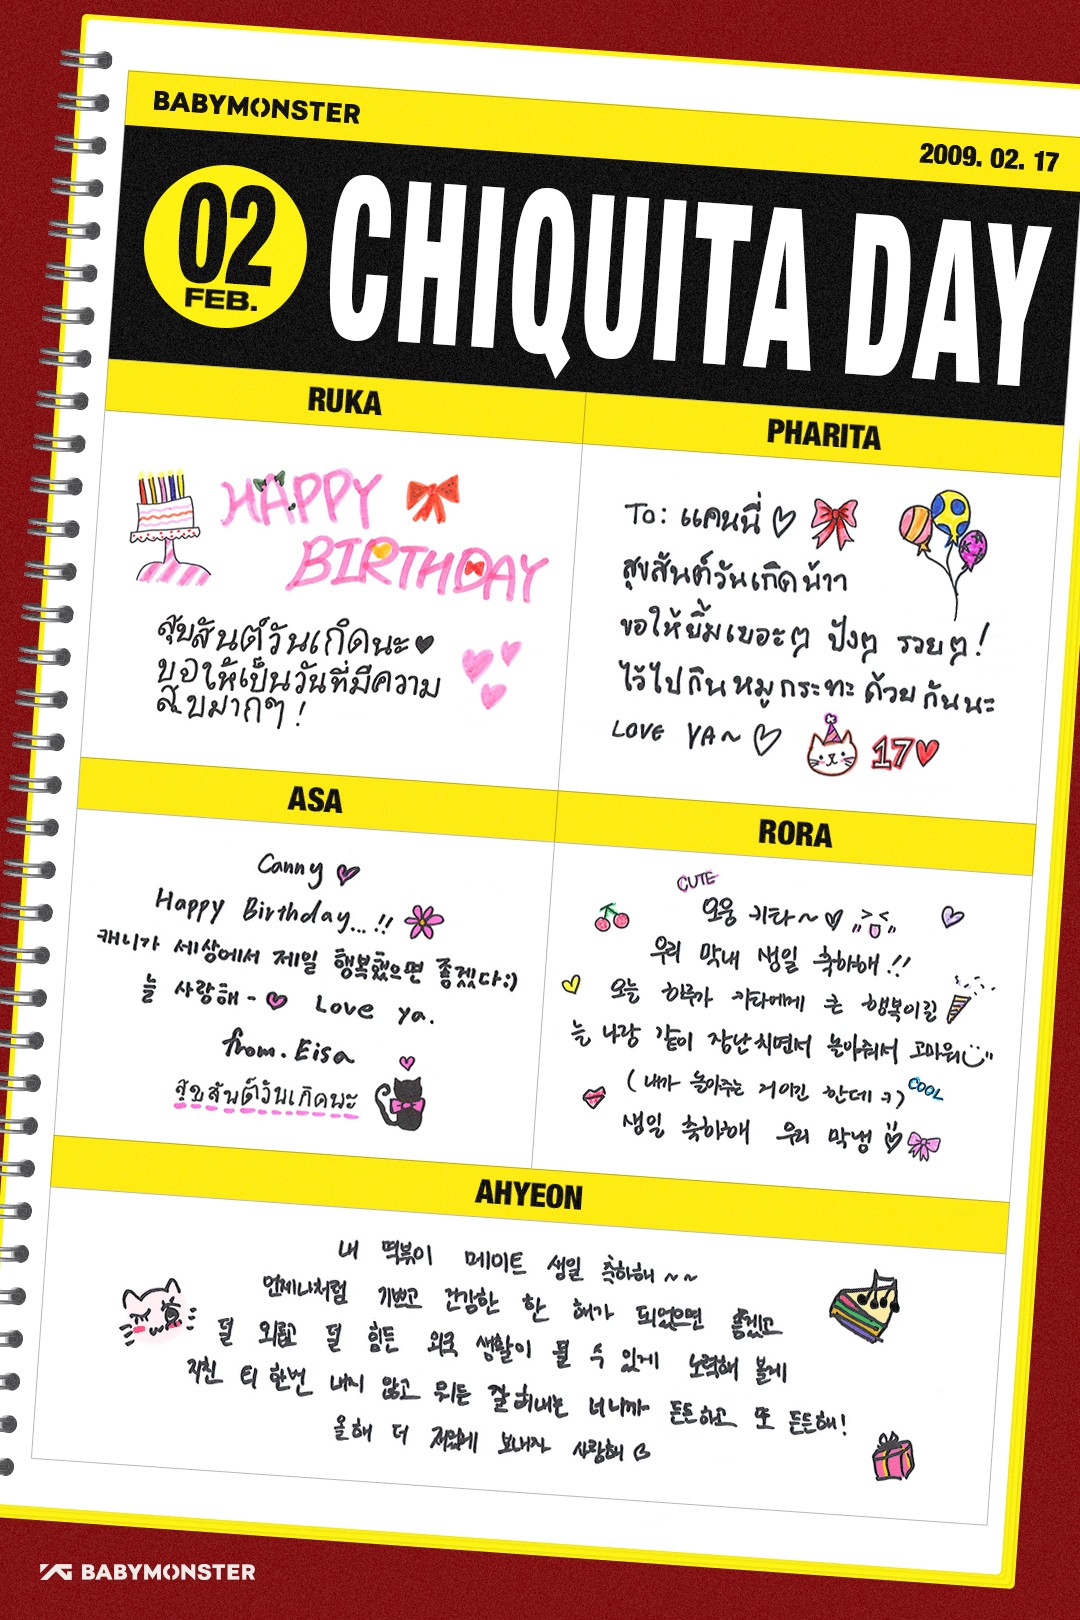 BABYMONSTER
2009. 02. 17
02
FEB.
CHIQUITA DAY
RUKA
HAPPY
BIRTHDAY
สุขสันต์วันเกิดนะ♥
ขอให้เป็นวันที่มีความ
สุขมากๆ !
PHARITA
To: แคนนี่ ♡
สุขสันต์วันเกิดน้าา
ขอให้ยิ้มเยอะๆ ปังๆ รวยๆ !
ไว้ไปกินหมูกระทะด้วยกันนะ
LOVE YA~ ♡
17♥
ASA
Canny ♥
Happy Birthday...!!
캐니가 세상에서 제일 행복했으면 좋겠다:)
늘 사랑해- ♥ Love ya.
from. Eisa
สุขสันต์วันเกิดนะ
RORA
CUTE
모웅 키타~♡
우리 막내 생일 축하해!!
오늘 하루가 키타에게 큰 행복이길
늘 나랑 같이 장난치면서 놀아줘서 고마워
(내가 놀아주는 거이긴 한데 =))
COOL
생일 축하해 우리 막냉
AHYEON
내 떡볶이 메이트 생일 축하해~~
언제나처럼 기쁘고 건강한 한 해가 되었으면 좋겠고
덜 외롭고 덜 힘든 외국 생활이 될 수 있게 노력해 볼게
지친 티 한번 내지 않고 뭐든 잘 해내는 너니까 든든하고 또 든든해!
올해 더 재밌게 보내자 사랑해 ♡
YG BABYMONSTER